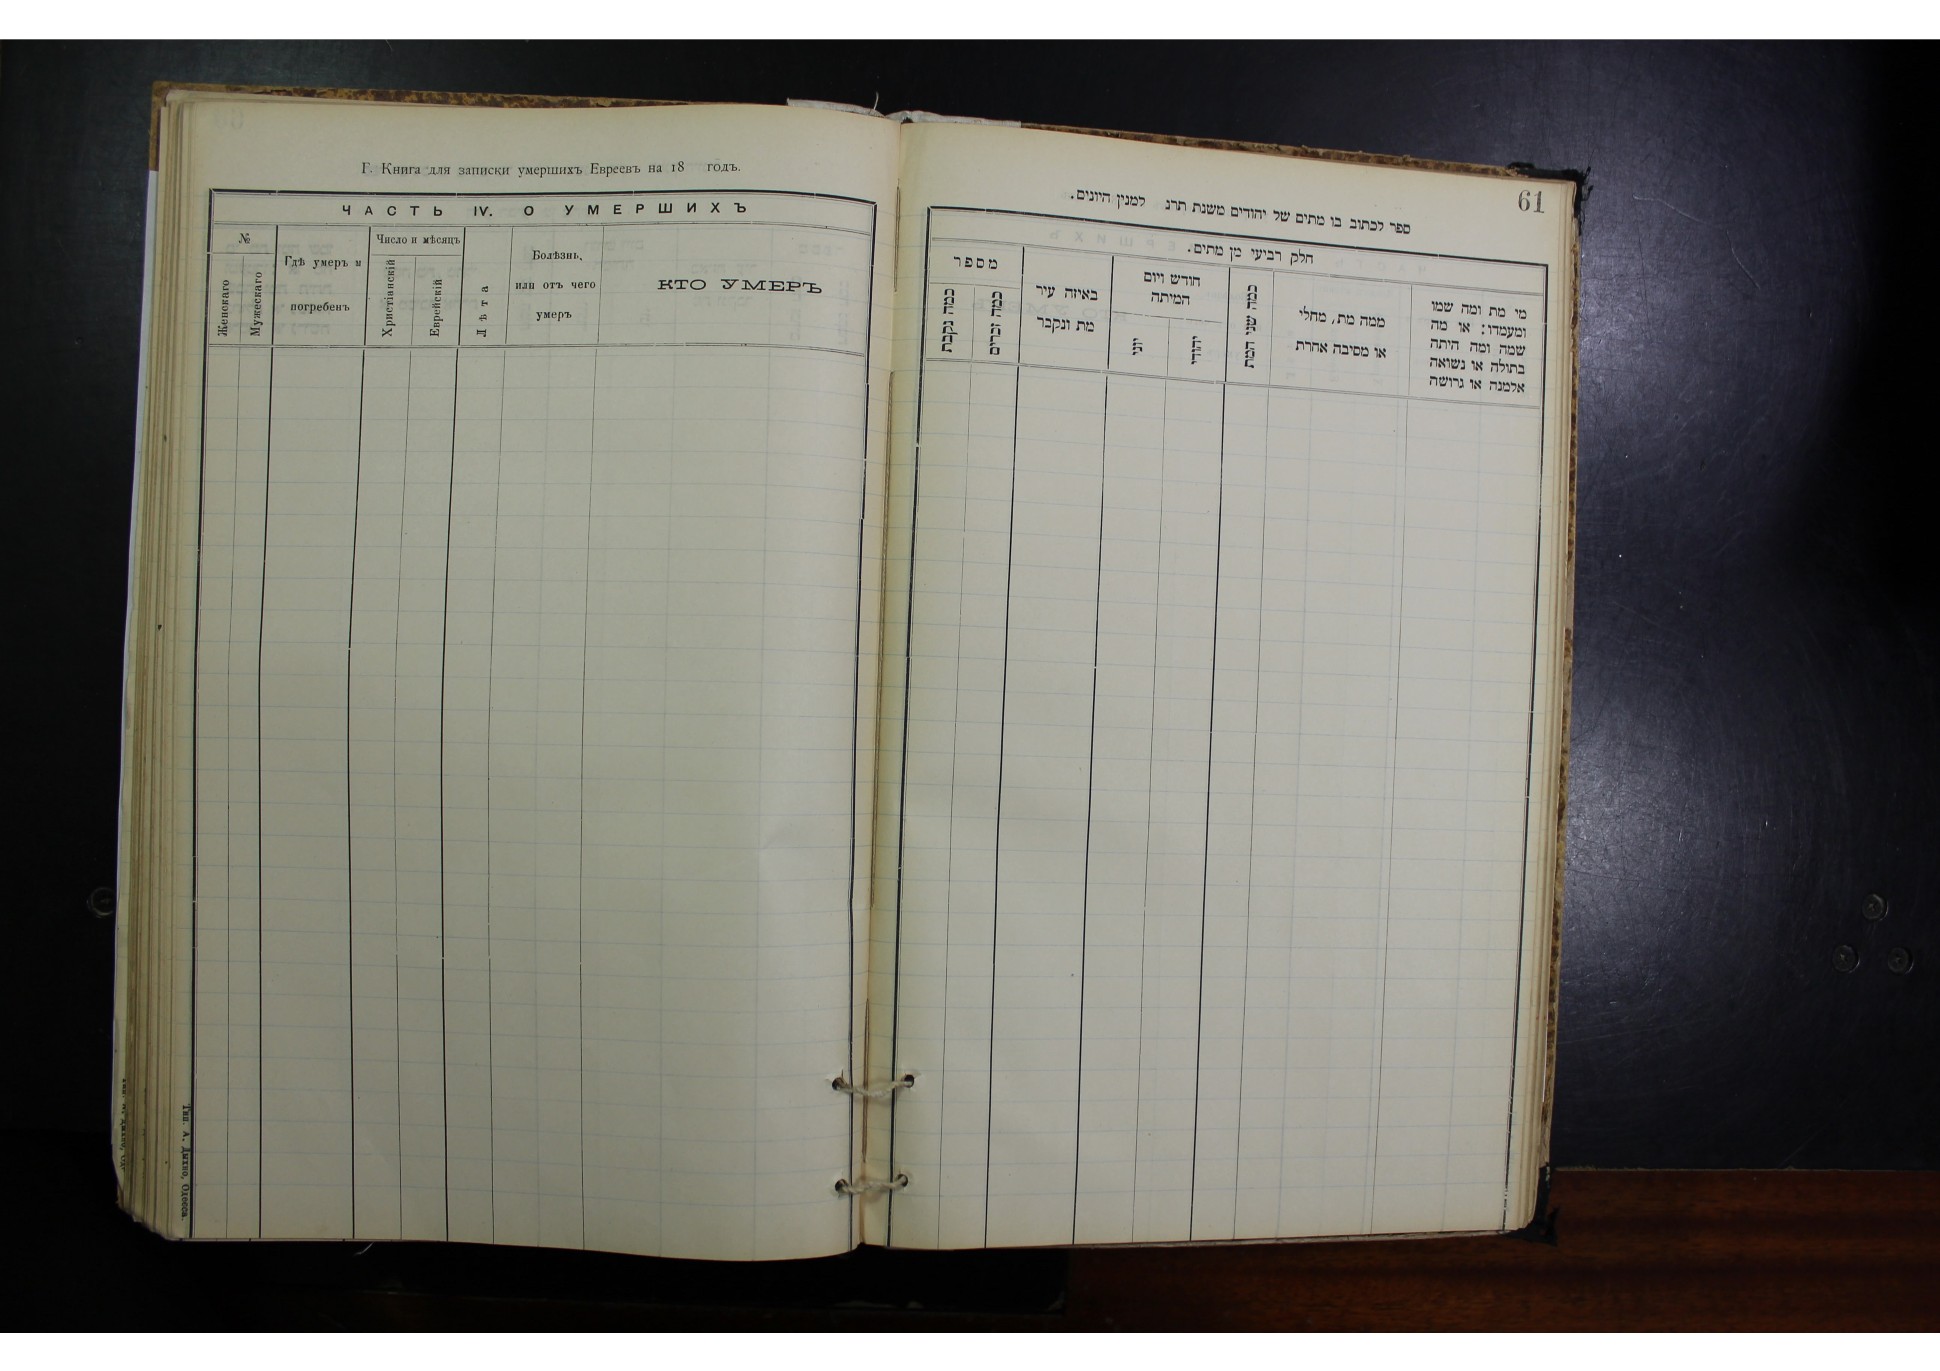 Г. Книга для записки умершихъ Евреевъ на 18 годъ.
ЧАСТЬ IV. О УМЕРШИХЪ
№
Женскаго
Мужескаго
Гдѣ умеръ и
погребенъ
Число и мѣсяцъ
Христіанскій
Еврейскій
Лѣта
Болѣзнь,
или отъ чего
умеръ
КТО УМЕРЪ
Тип. А. Дыхно, Одесса.
61
ספר לכתוב בו מתים של יהודים משנת תרנ למנין היונים.
חלק רביעי מן מתים.
מספר
כמה נקבת
כמה זכרים
באיזה עיר
מת ונקבר
חודש ויום
המיתה
יוני
יהודי
כמה שני המת
ממה מת, מחלי
או מסיבה אחרת
מי מת ומה שמו
ומעמדו: או מה
שמה ומה היתה
בתולה או נשואה
אלמנה או גרושה